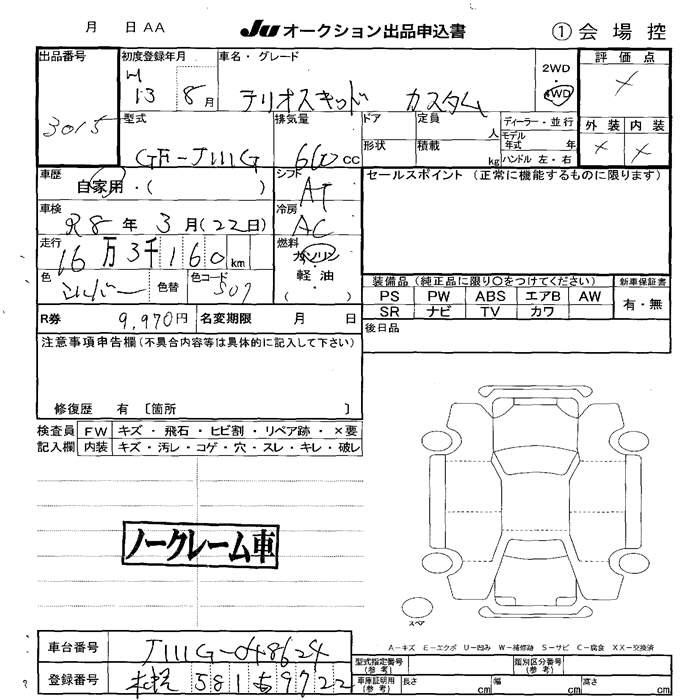 月 日 AA
JU オークション出品申込書
① 会場控
出品番号 3015
初度登録年月 H 13 8月
車名・グレード テリオスキッド カスタム
2WD
4WD
評価点 ×
外装 × 内装 ×
型式 GF-J111G
排気量 660 CC
ドア
定員 人
ディーラー・並行
モデル年式 年
形状
積載 kg
ハンドル 左・右
車歴 自家用・( )
シフト AT
セールスポイント (正常に機能するものに限ります)
車検 R8年 3月(22日)
冷房 AC
走行 16万3千160km
燃料 ガソリン・軽油・( )
色 シルバー 色替
色コード S07
装備品 (純正品に限り○をつけてください)
新車保証書
PS PW ABS エアB AW
有・無
SR ナビ TV カワ
R券 9,970円
名変期限 月 日
後日品
注意事項申告欄 (不具合内容等は具体的に記入して下さい)
修復歴 有 〔箇所 〕
検査員記入欄
FW キズ・飛石・ヒビ割・リペア跡・×要
内装 キズ・汚レ・コゲ・穴・スレ・キレ・破レ
ノークレーム車
スペア
A-キズ E-エクボ U-凹み W-補修跡 S-サビ C-腐食 XX-交換済
車台番号 J111G-048624
型式指定番号 (参考)
類別区分番号 (参考)
登録番号 581 あ9722
車庫証明用 (参考) 長さ cm 幅 cm 高さ cm